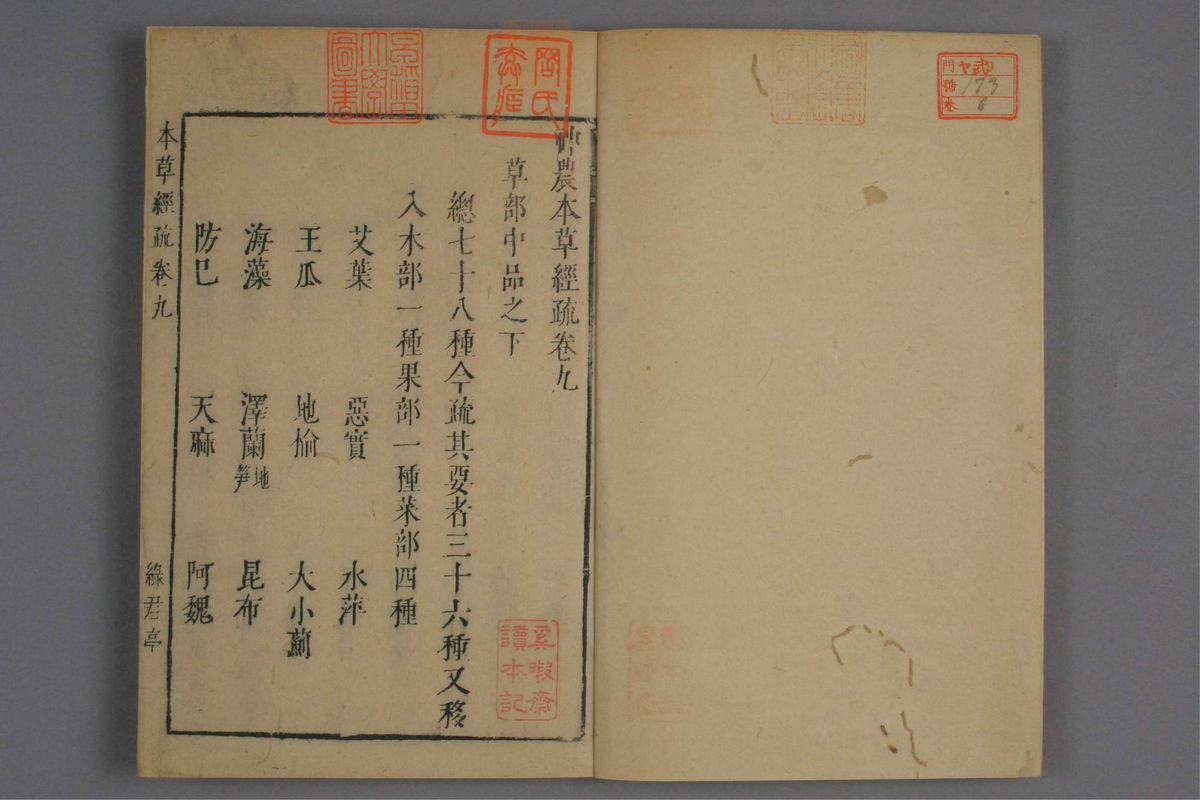 門 ヤ武
號 173
卷 6
神農本草經疏卷九
草部中品之下
總七十八種今疏其要者三十六種又移
入木部一種果部一種菜部四種
艾葉 惡實 水萍
王瓜 地榆 大小薊
海藻 澤蘭地笋 昆布
防巳 天麻 阿魏
本草經疏 卷九 綠君亭
奚暇齋
讀本記